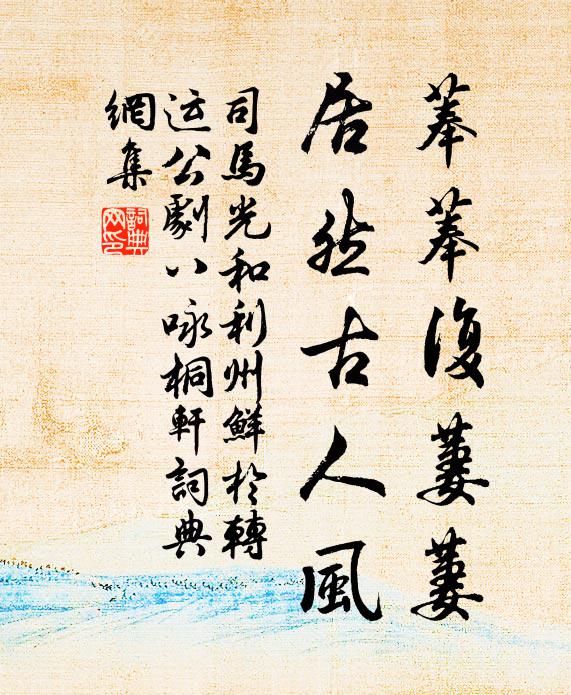 菶菶復萋萋
居然古人風
司馬光和利州鮮於轉
运公劇八咏桐軒詞典
網集
詞典网印